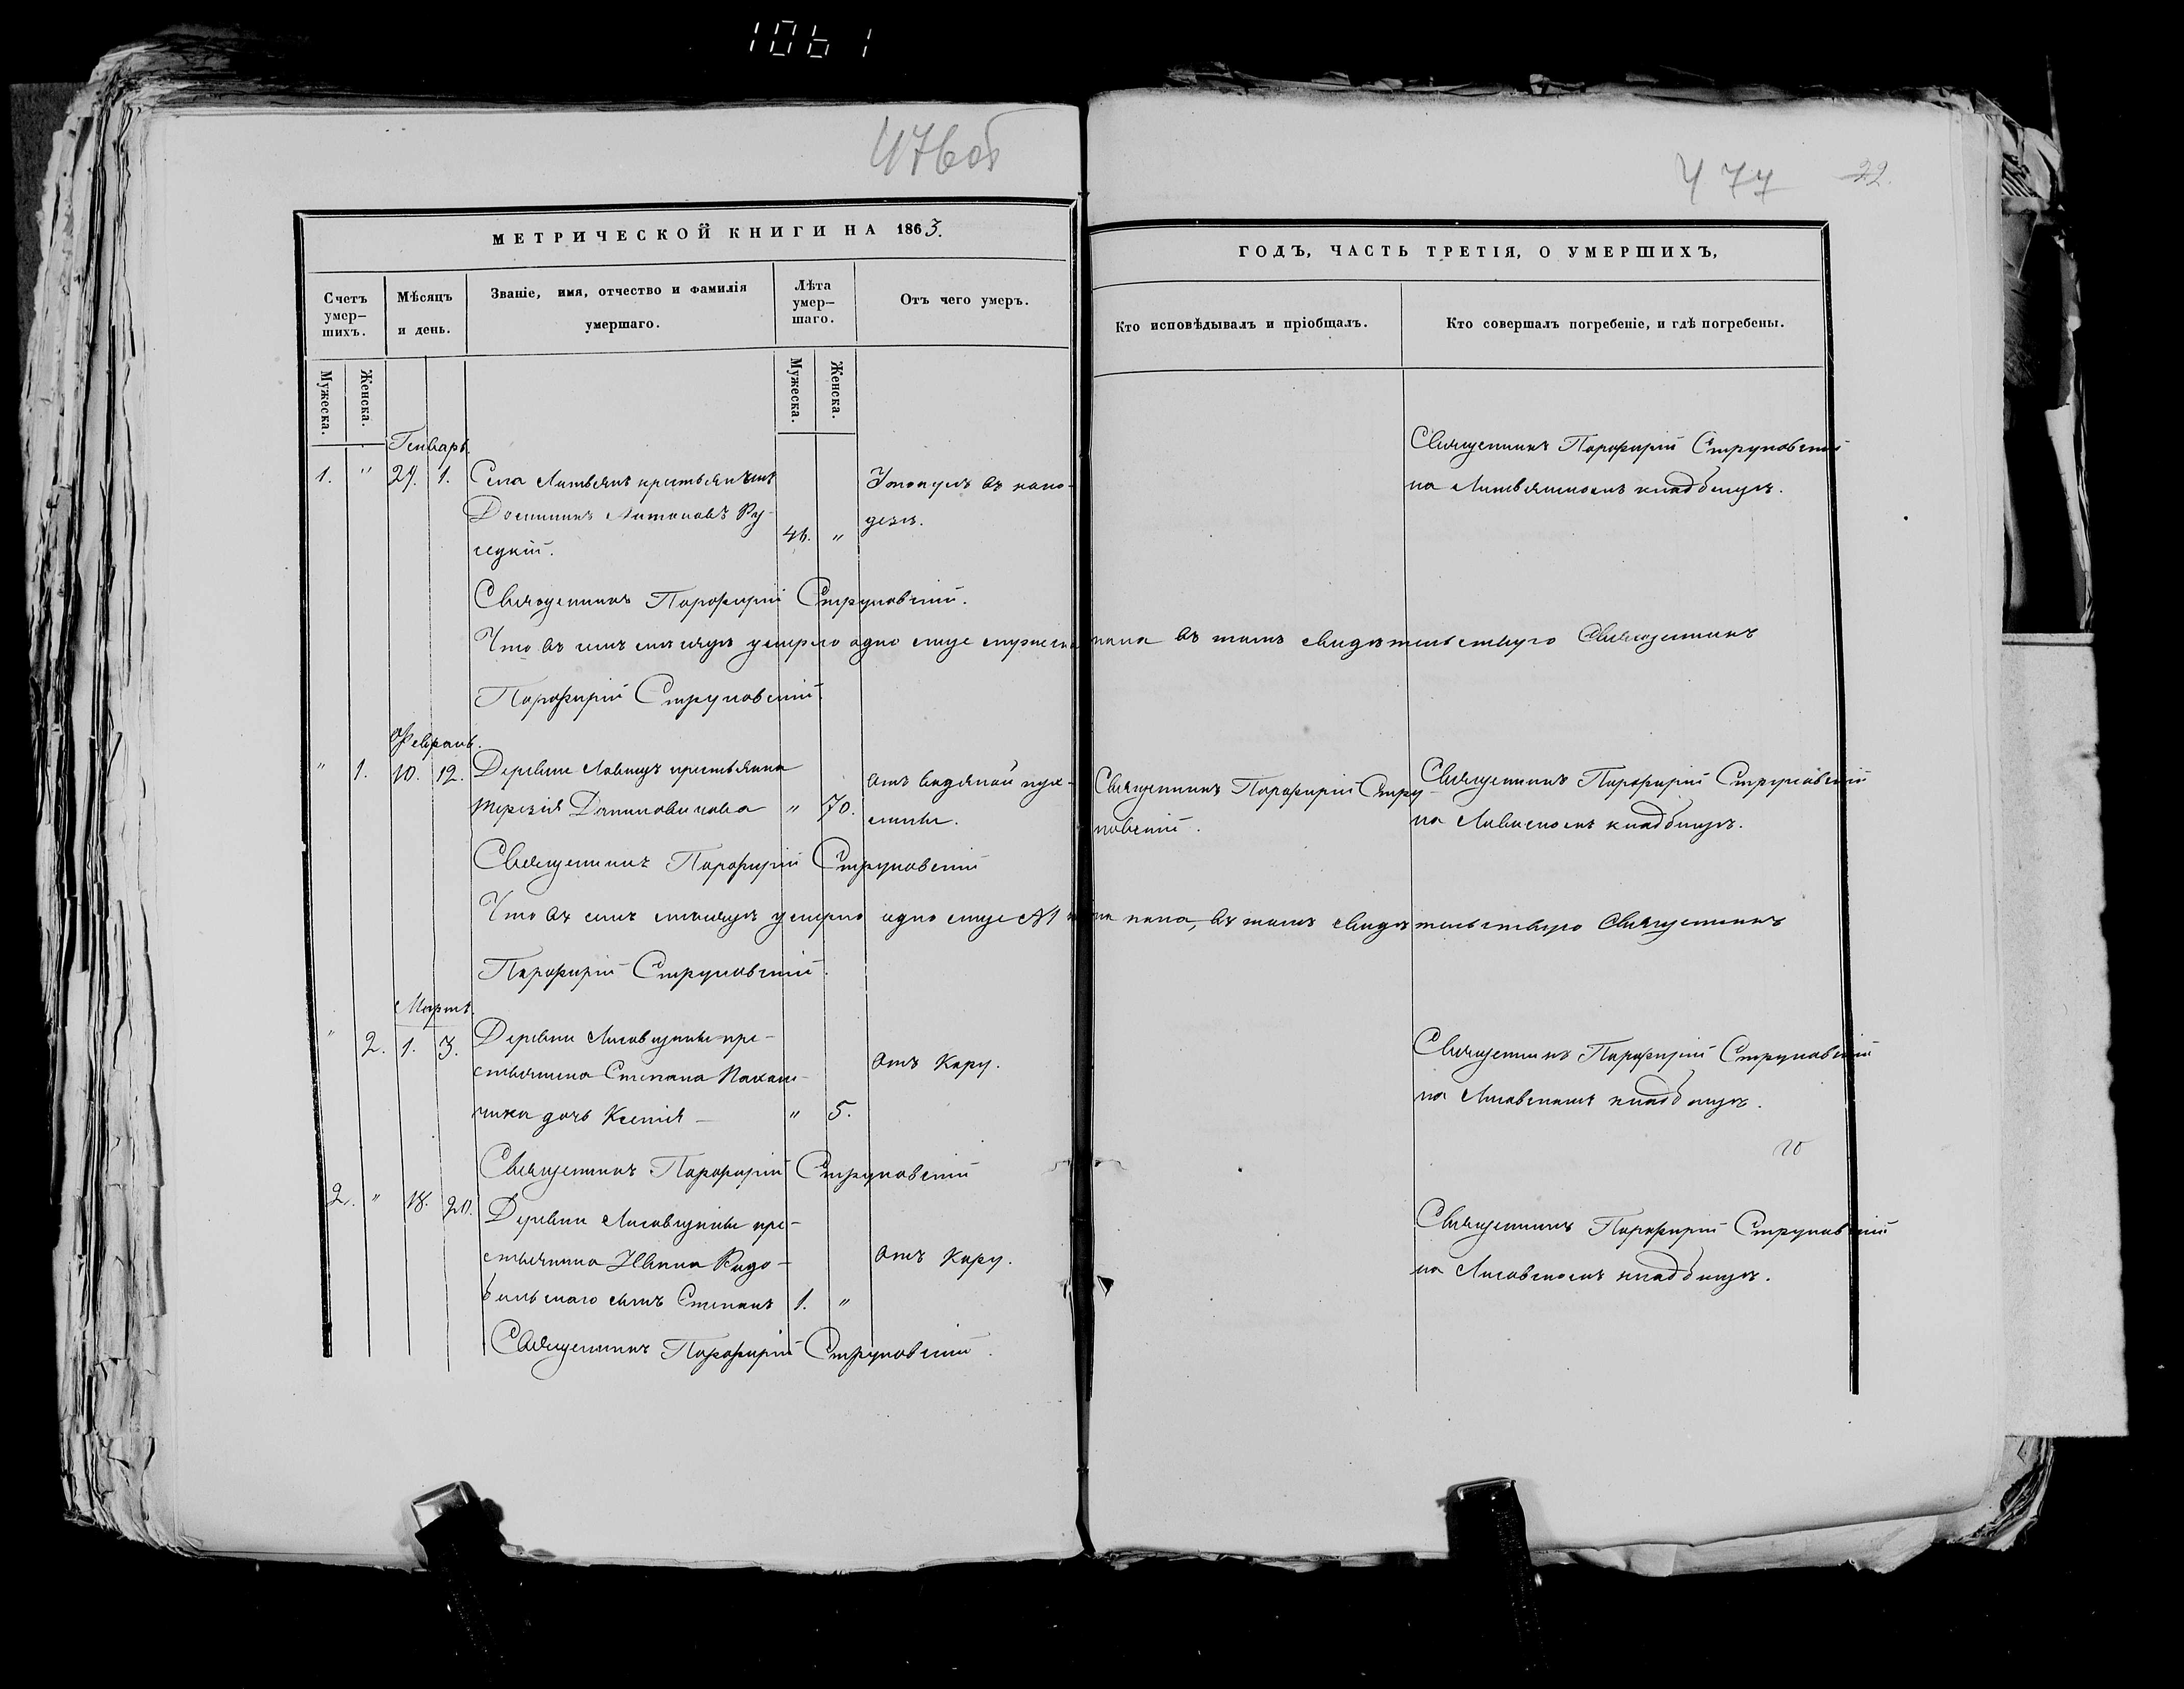 1061
476об
477 22.
МЕТРИЧЕСКОЙ КНИГИ НА 1863.
ГОДЪ, ЧАСТЬ ТРЕТІЯ, О УМЕРШИХЪ,
Счетъ умер-шихъ.
Мѣсяцъ и день.
Званіе, имя, отчество и фамилія умершаго.
Лѣта умер-шаго.
Отъ чего умеръ.
Кто исповѣдывалъ и пріобщалъ.
Кто совершалъ погребеніе, и гдѣ погребены.
Мужеска. Женска. Мужеска. Женска.
Генварь.
1. " 29. 1. Села Литвянъ крестьянинъ
Доминикъ Антоновъ Ру-
сецкій. 46. "
Утонулъ въ коло-
дезѣ.
Священникъ Порфирій Струковскій
на Литвянскомъ кладбищѣ.
Священникъ Порфирій Струковскій.
Что въ семъ мѣсяцѣ умерло одно лице мужеска пола въ томъ свидѣтельствую Священникъ
Порфирій Струковскій.
Февраль.
" 1. 10. 12. Деревни крестьянка
Терезія Даниловичова " 70.
отъ водяной пух-
лины.
Священникъ Порфирій Стру
ковскій.
Священникъ Порфирій Струковскій
на кладбищѣ.
Священникъ Порфирій Струковскій
Что въ семъ мѣсяцѣ умерло одно лице пола, въ томъ свидѣтельствую Священникъ
Порфирій Струковскій.
Мартъ.
" 2. 1. 3. Деревни Лисовщины кре-
стьянина Степана
дочь Ксенія – " 5.
отъ Кору.
Священникъ Порфирій Струковскій
на Лисовскомъ кладбищѣ.
Священникъ Порфирій Струковскій
2. " 18. 20. Деревни Лисовщины кре-
стьянина Ивана Радо-
бильскаго сынъ Степанъ 1. "
отъ Кору.
Священникъ Порфирій Струковскій
на Лисовскомъ кладбищѣ.
Священникъ Порфирій Струковскій.